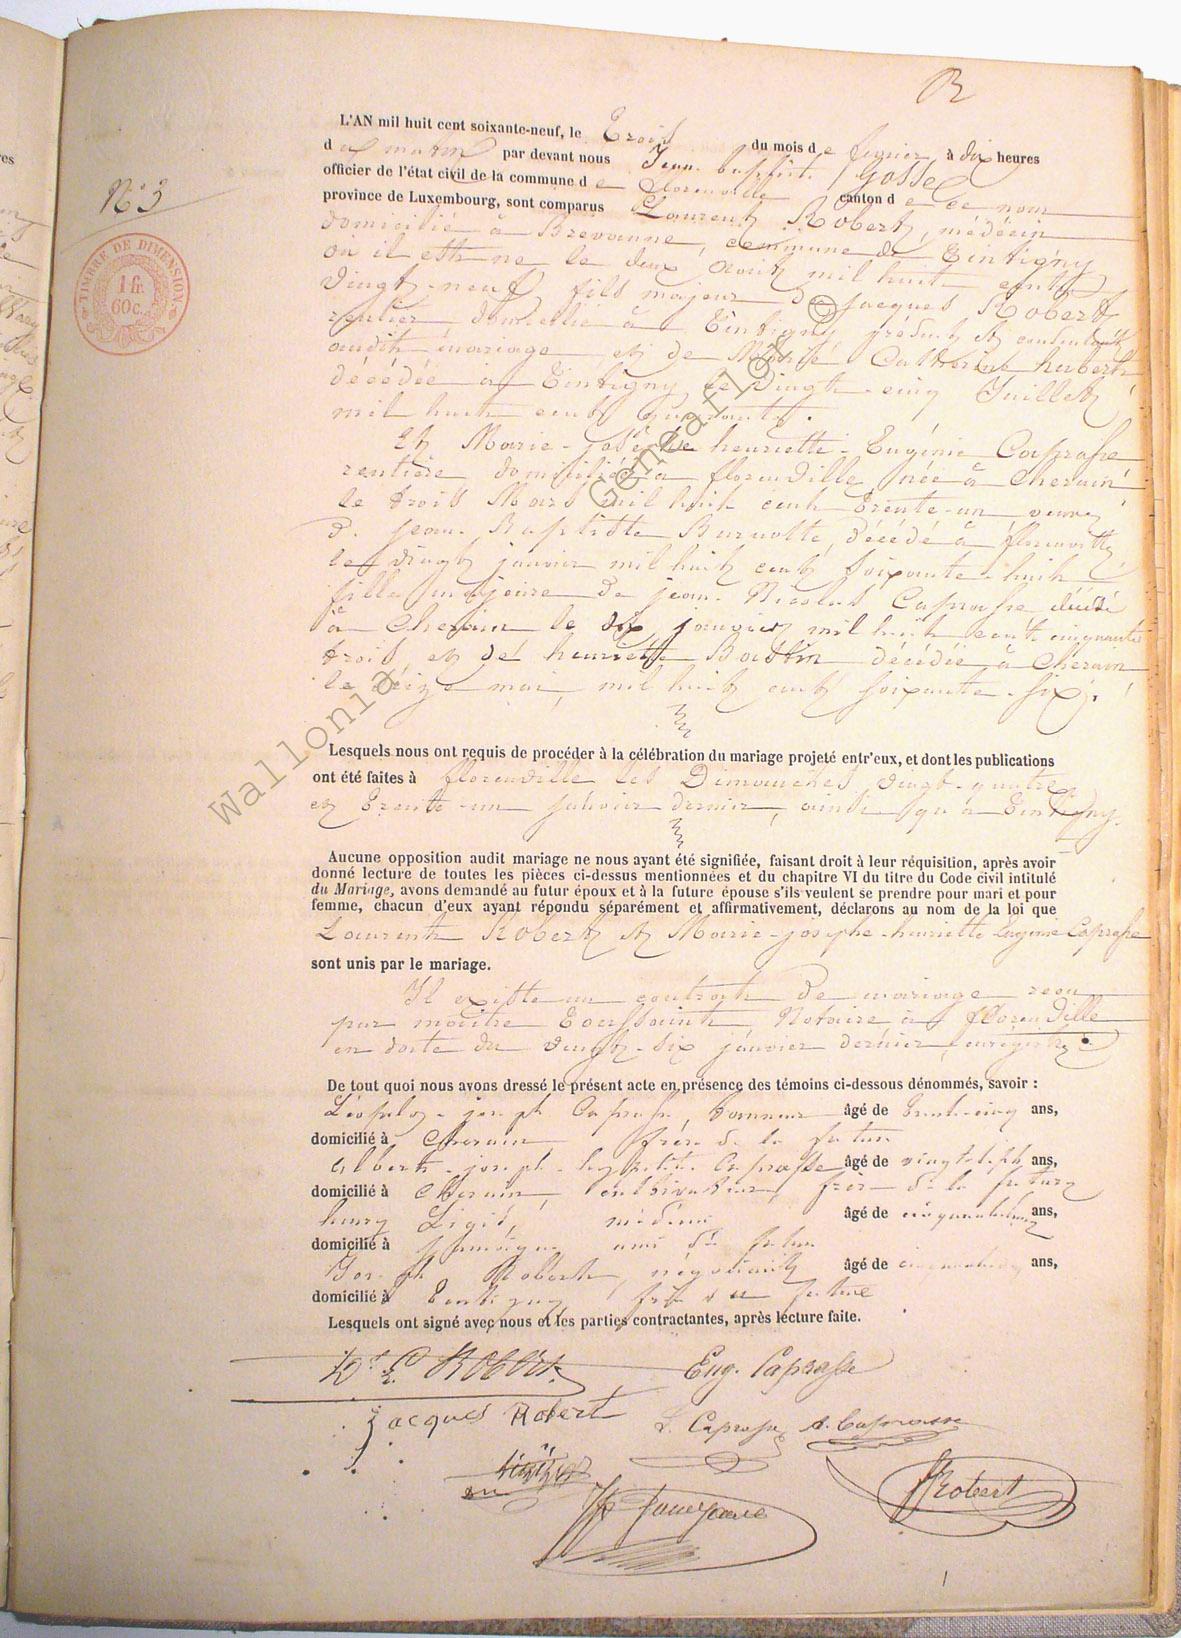 R
N° 3
TIMBRE DE DIMENSION
1 fr.
60 c.
L'AN mil huit cent soixante-neuf, le Trois du mois de février à dix heures
du matin par devant nous Jean baptiste Gosse
officier de l'état civil de la commune de florenville canton de ce nom
province de Luxembourg, sont comparus Laurent Robert, médecin
domicilié à Brevanne, commune de Tintigny
où il est né le deux Août mil huit cent
vingt-neuf fils majeur de jacques Robert
rentier, domicilié à Tintigny présent et consentant
audit mariage et de Marie Catherine hubert
décédée à Tintigny le vingt-cinq Juillet
mil huit cent quarante.
Et Marie-joséphe henriette-Eugénie Caprasse
rentière, domiciliée à florenville née à Cherain
le trois Mars mil huit cent trente-un veuve
de jean-Baptiste Burnotte, décédé à florenville
le vingt janvier mil huit cent soixante-huit
fille majeure de jean-Nicolas Caprasse décédé
à Cherain le dix janvier mil huit cent cinquante
trois et de henriette Bastin décédée à Cherain
le seize mai, mil huit cent soixante-six.
Lesquels nous ont requis de procéder à la célébration du mariage projeté entr'eux, et dont les publications
ont été faites à florenville les Dimanches vingt-quatre
et trente-un janvier dernier, ainsi qu'à Tintigny.
Aucune opposition audit mariage ne nous ayant été signifiée, faisant droit à leur réquisition, après avoir
donné lecture de toutes les pièces ci-dessus mentionnées et du chapitre VI du titre du Code civil intitulé
du Mariage, avons demandé au futur époux et à la future épouse s'ils veulent se prendre pour mari et pour
femme, chacun d'eux ayant répondu séparément et affirmativement, déclarons au nom de la loi que
Laurent Robert et Marie-josephe-henriette Eugénie Caprasse
sont unis par le mariage.
Il existe un contrat de mariage reçu
par maître Toussaint, Notaire à florenville
en date du vingt-six janvier dernier, enregistré.
De tout quoi nous avons dressé le présent acte en présence des témoins ci-dessous dénommés, savoir :
Léopold-joseph Caprasse, âgé de trente-cinq ans,
domicilié à Cherain frère de la future
Albert-joseph-hyppolite Caprasse âgé de vingt-sept ans,
domicilié à Cherain, cultivateur, frère de la future
henry médecin âgé de ans,
domicilié à ami du futur
Joseph Robert, négociant âgé de ans,
domicilié à Tintigny, frère du futur
Lesquels ont signé avec nous et les parties contractantes, après lecture faite.
Dr L. Robert Eug. Caprasse
jacques Robert L. Caprasse A. Caprasse
J Robert
Wallonia Genea 1900 ©